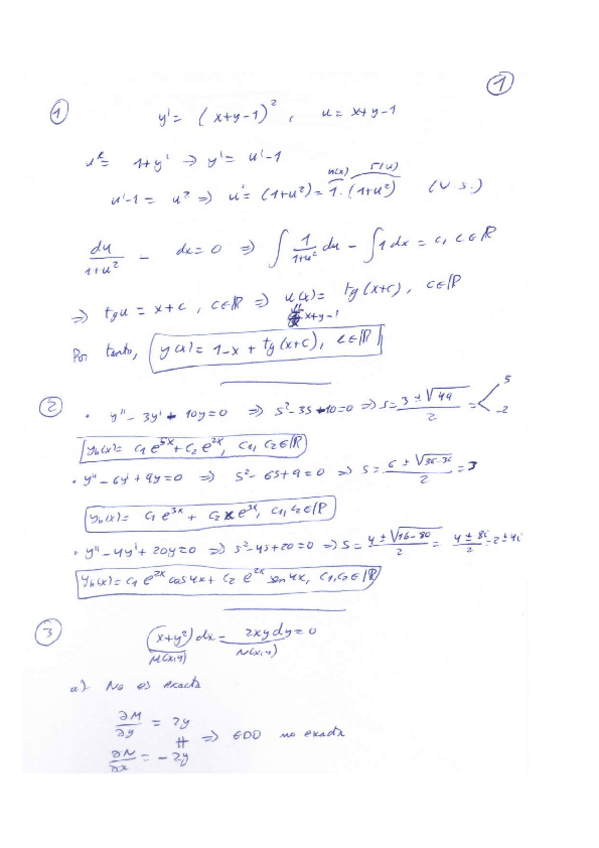 1
1 y' = (x+y-1)², u = x+y-1
u' = 1+y' => y' = u'-1
u'-1 = u² => u' = (1+u²) = 1·(1+u²) (V.S.)
du/(1+u²) - dx = 0 => ∫ 1/(1+u²) du - ∫ 1 dx = c, c∈ℝ
=> tg u = x+c, c∈ℝ => u(x) = tg(x+c), c∈ℝ
x+y-1
Por tanto, y(x) = 1-x + tg(x+c), c∈ℝ
2 · y'' - 3y' - 10y = 0 => s² - 3s - 10 = 0 => s = (3 ± √49)/2 = < 5 -2
y_h(x) = c₁ e^{5x} + c₂ e^{2x}, c₁, c₂∈ℝ
· y'' - 6y' + 9y = 0 => s² - 6s + 9 = 0 => s = (6 ± √(36-36))/2 = 3
y_h(x) = c₁ e^{3x} + c₂ x e^{3x}, c₁, c₂∈ℝ
· y'' - 4y' + 20y = 0 => s² - 4s + 20 = 0 => s = (4 ± √(16-80))/2 = (4 ± 8i)/2 = 2 ± 4i
y_h(x) = c₁ e^{2x} cos 4x + c₂ e^{2x} sen 4x, c₁, c₂∈ℝ
3 (x+y²) dx - 2xy dy = 0
M(x,y) N(x,y)
a). No es exacta
∂M/∂y = 2y
≠ => EDO no exacta
∂N/∂x = -2y